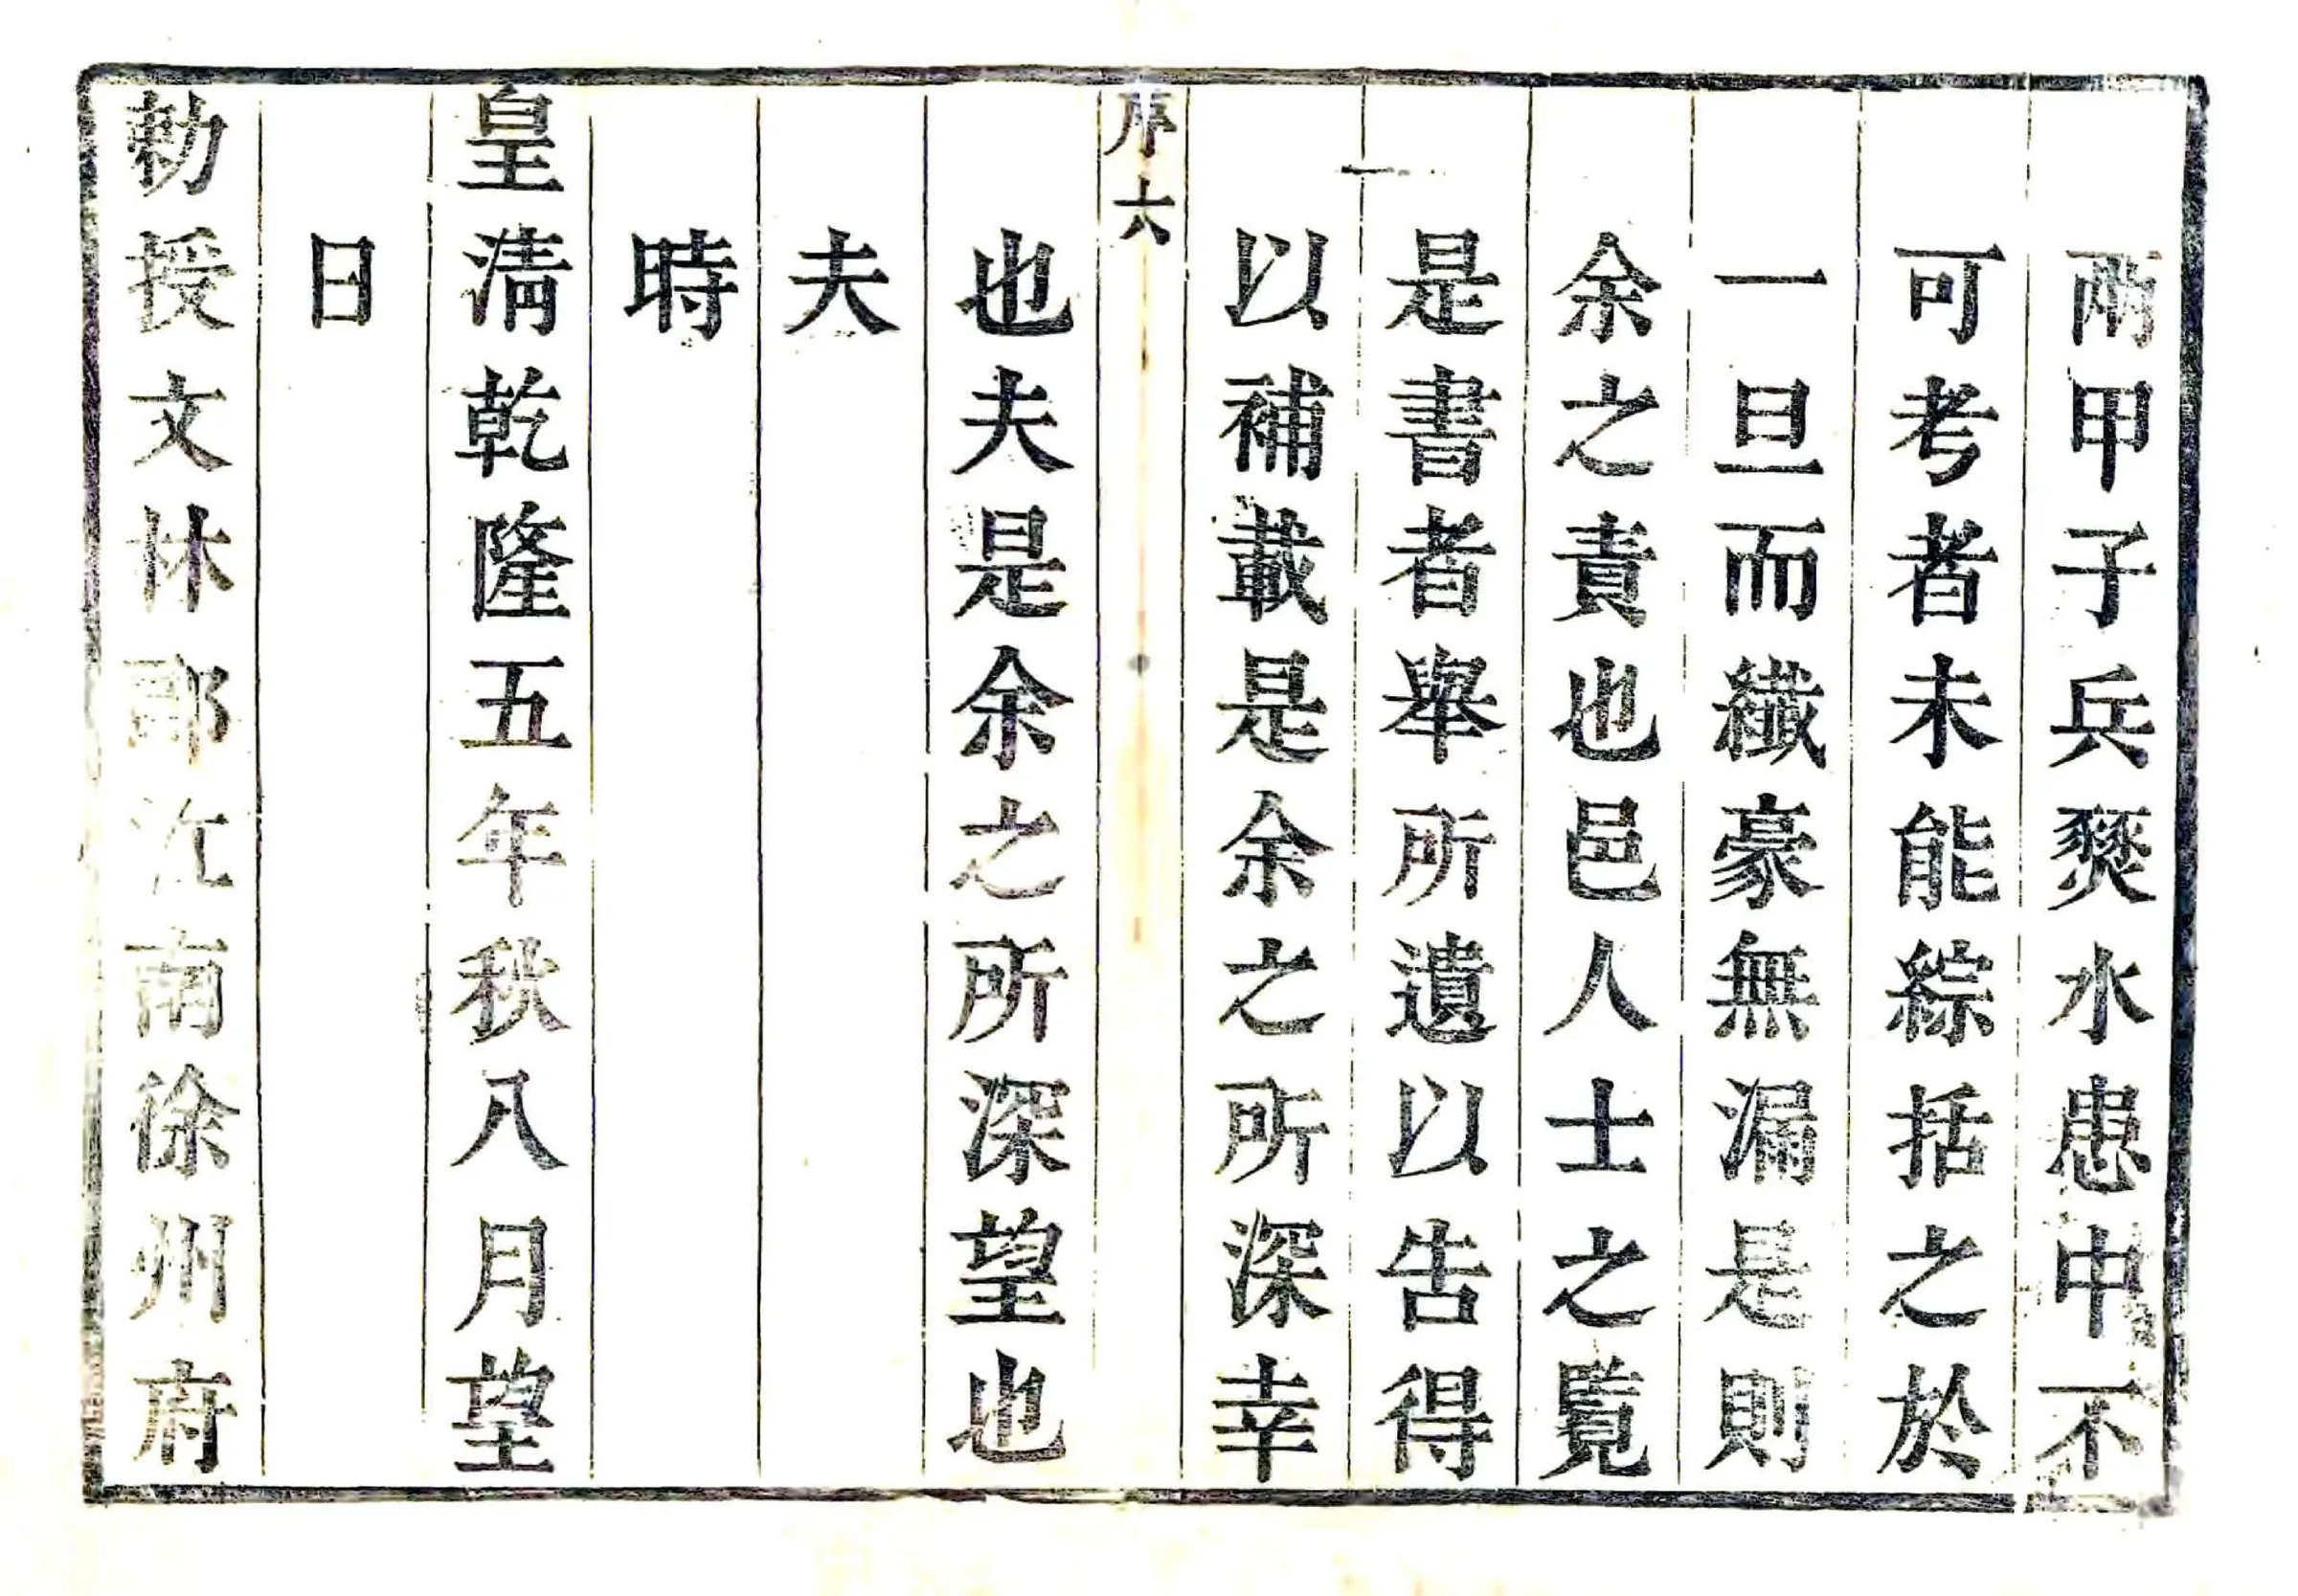 兩甲子兵燹水患中不
可考者未能綜括之於
一旦而纖豪無漏是則
余之責也邑人士之覽
是書者舉所遺以告得
以補載是余之所深幸
序六
也夫是余之所深望也
夫
時
皇淸乾隆五年秋八月望
日
勅授文林郎江南徐州府